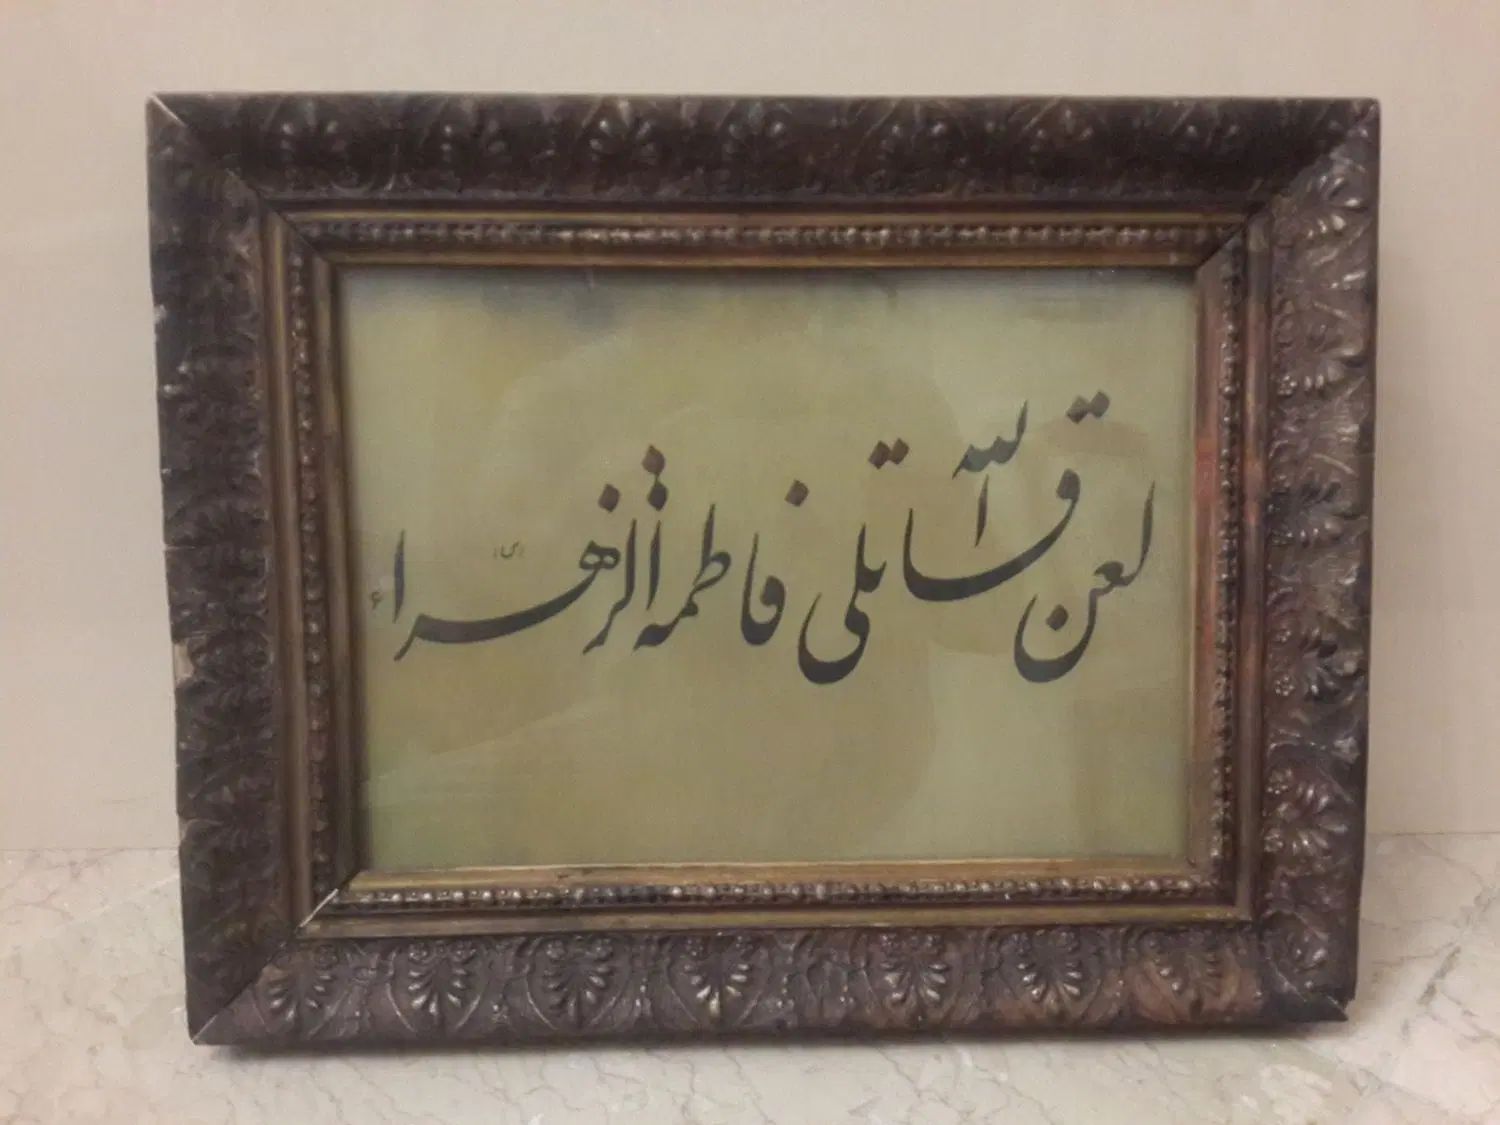 لعن الله قاتلی فاطمة الزهراء